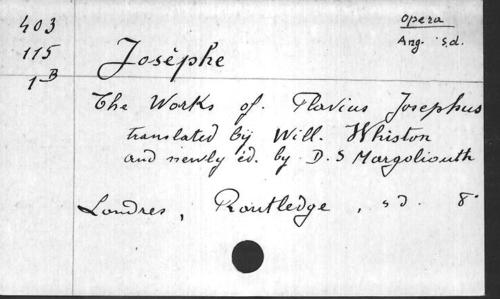 403
115
1B
opera
Ang. s.d.
Josèphe
The Works of. Flavius Josephus
translated by Will. Whiston
and newly ed. by D. S Margoliouth
Londres, Routledge, s d. 8°